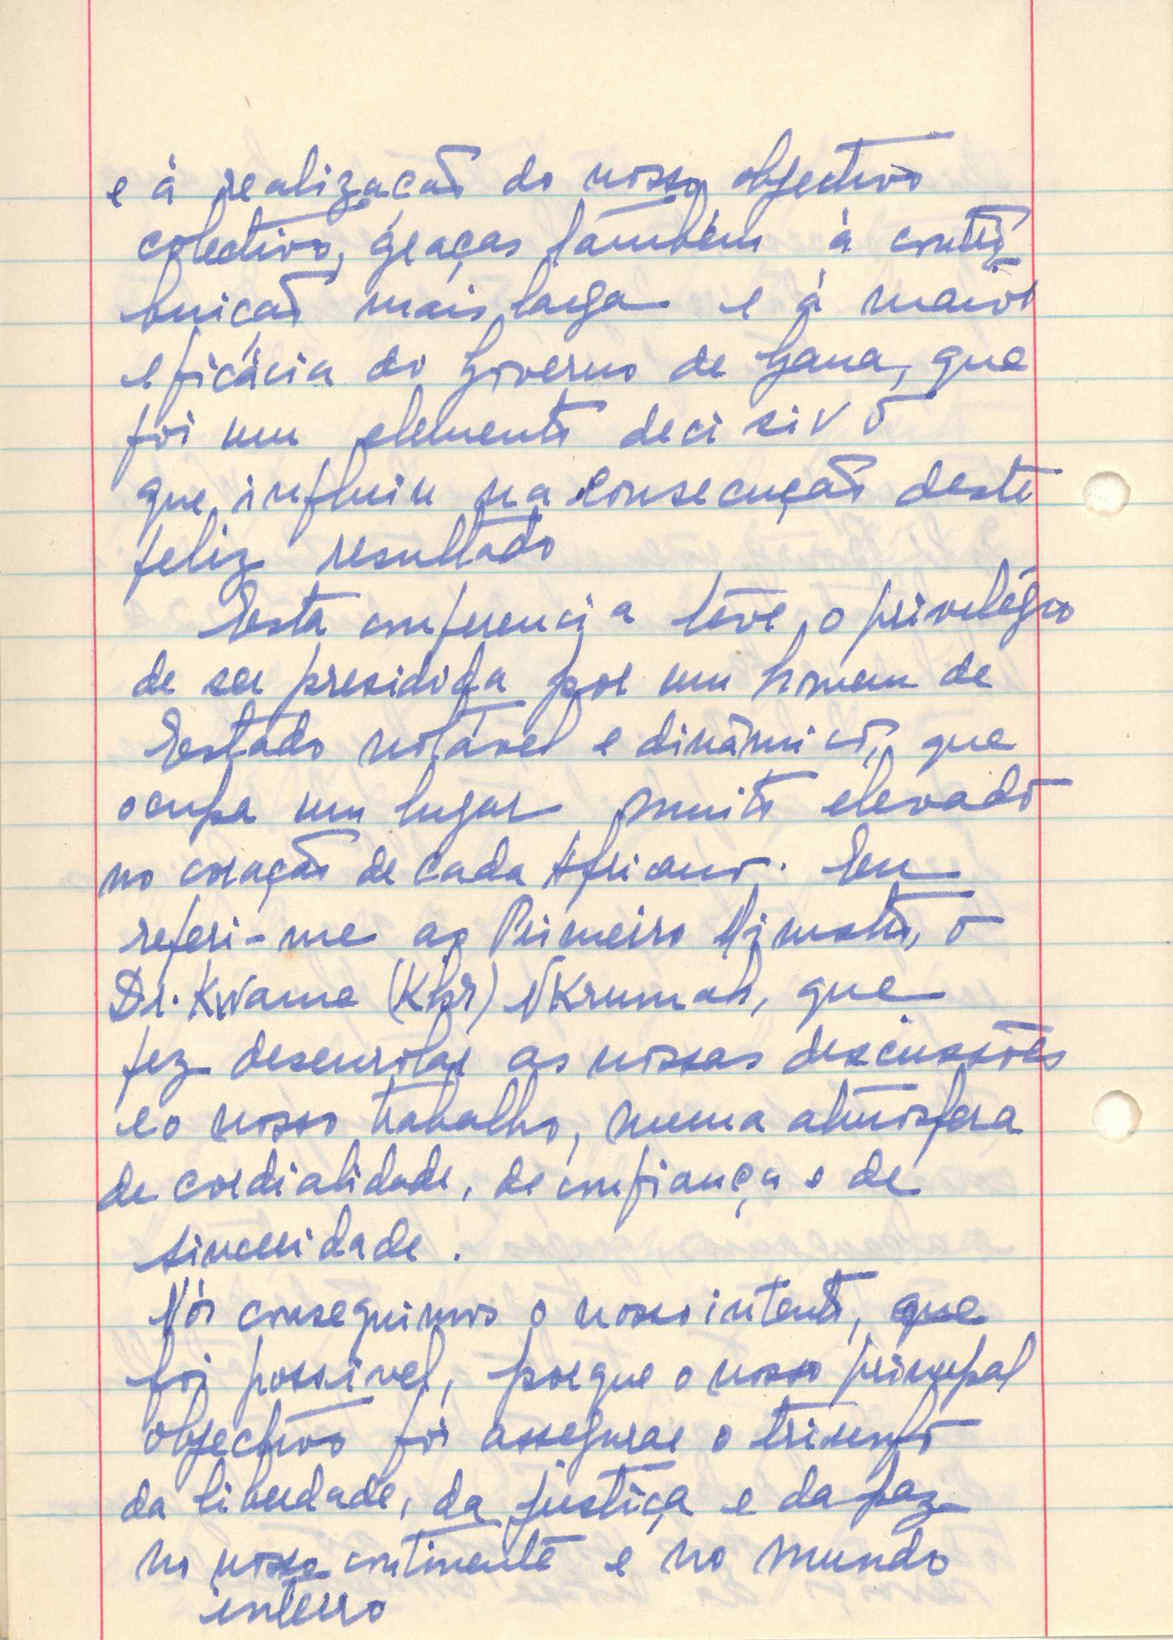 e á realização do nosso objectivo
colectivo, graças também á contri-
buição mais larga e á maior
eficácia do Governo de Gana, que
foi um elemento decisivo
que influiu na consecução deste
feliz resultado
Esta conferencia teve o privelégio
de ser presidida por um homem de
Estado notável e dinâmico, que
ocupa um lugar muito elevado
no coração de cada Africano. Eu
referi-me ao Primeiro Ministro, o
Dr. Kwame NKrumah, que
fez desenrolar as nossas descussões
e o nosso trabalho, numa atmosfera
de cordialidade, de confiança e de
sinceridade.
Nós conseguimos o nosso intento, que
foi possível, porque o nosso principal
objectivo foi assegurar o triunfo
da liberdade, da justiça e da paz
no nosso continente e no mundo
inteiro